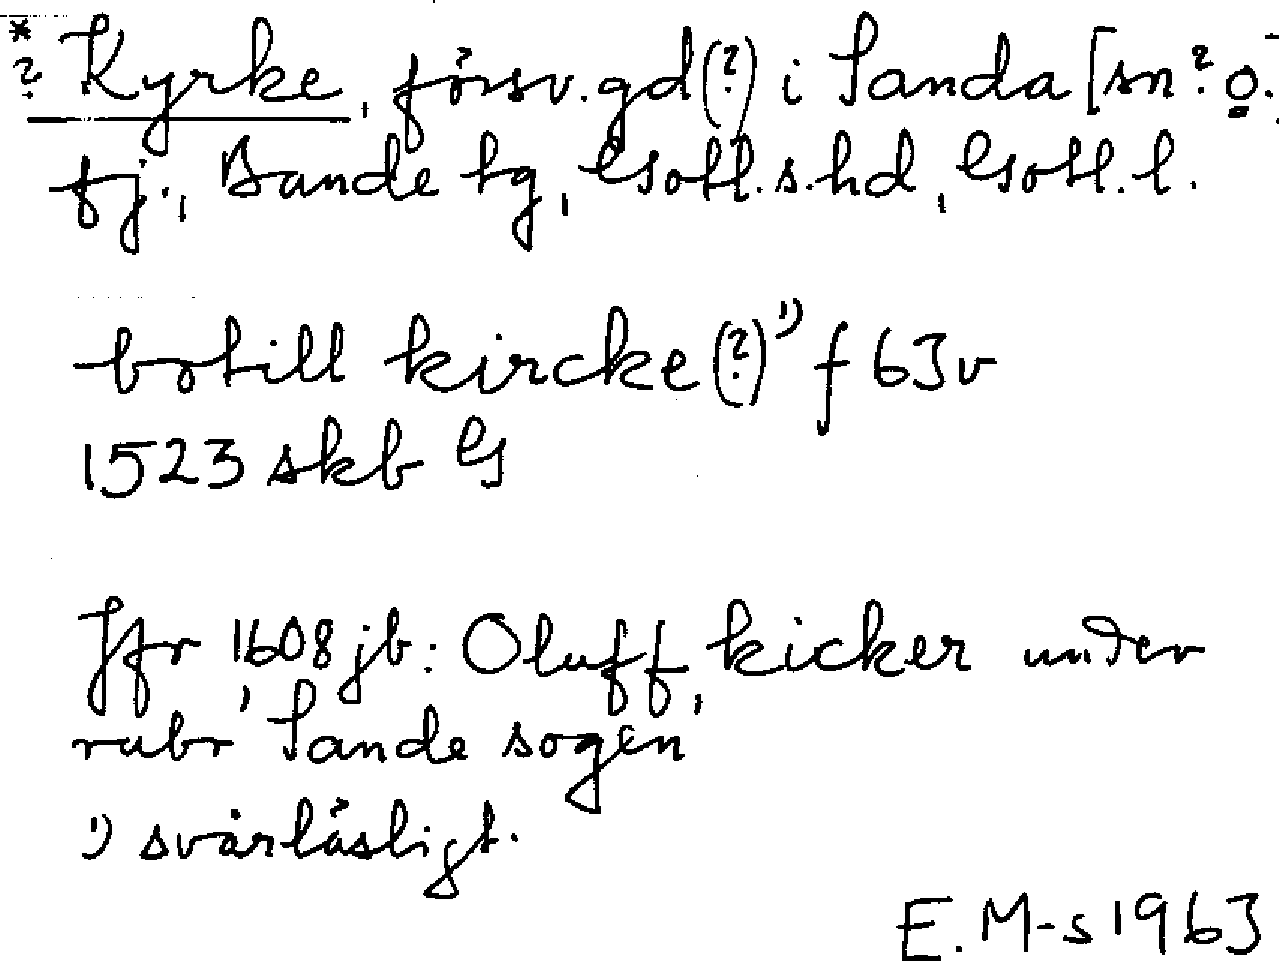 *? Kyrke, försv. gd(?) i Sanda [sn? o.]
tj., Bande tg, Gotl. s. hd, Gotl. l.
botill kircke(?)¹⁾ f 63v
1523 skb G
Jfr 1608 jb: Oluff, kicker under
rubr 'Sande sogen'
¹⁾ svårläsligt.
E. M-s 1963